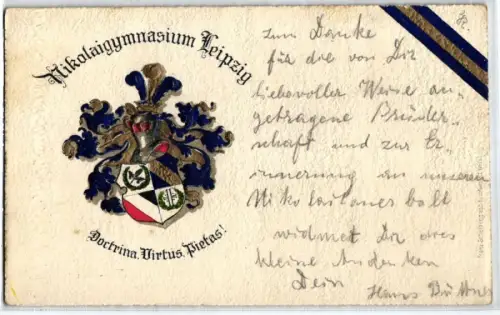 Nikolaigymnasium Leipzig
Doctrina, Virtus, Pietas!
zum Danke
für die von Dir
liebevoller Weise an-
getragene Brüder-
schaft und zur Er-
innerung an unseren
Nikolaitanerball
widmet Dir das
kleine Andenken
Dein Hans